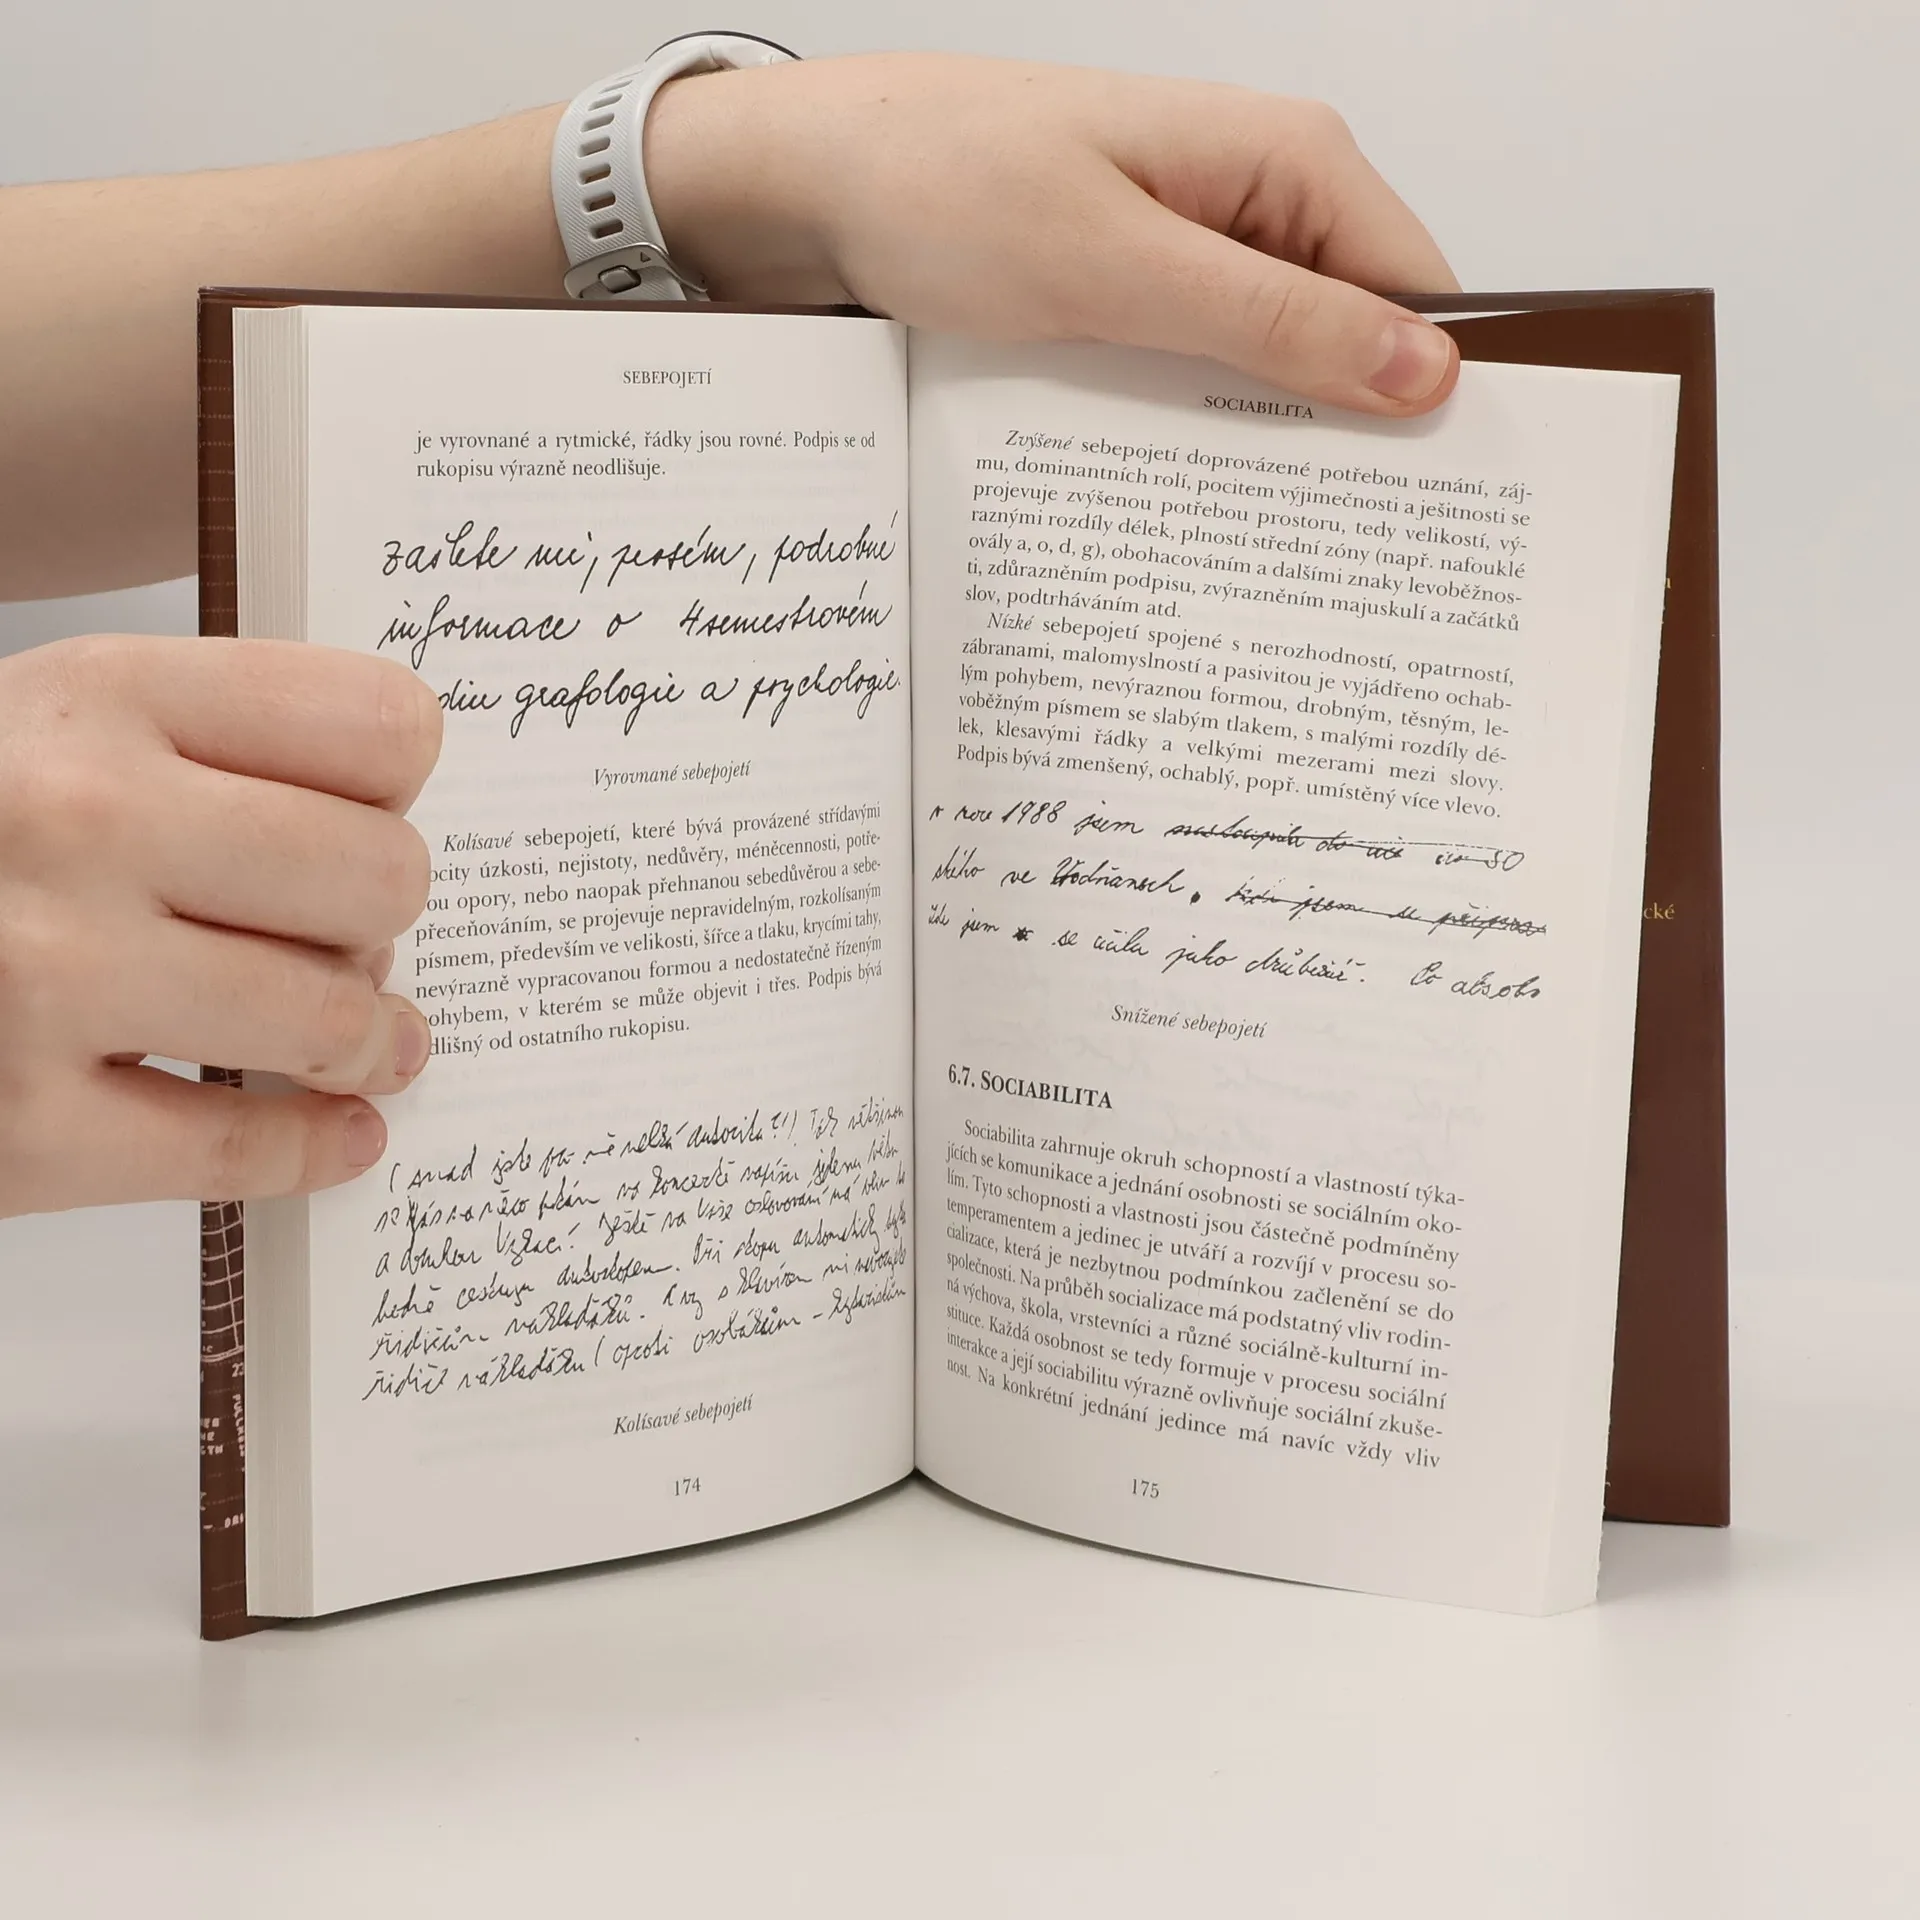 SEBEPOJETÍ
je vyrovnané a rytmické, řádky jsou rovné. Podpis se od
rukopisu výrazně neodlišuje.
zašlete mi, prosím, podrobné
informace o 4semestrovém
diu grafologie a psychologie.
Vyrovnané sebepojetí
Kolísavé sebepojetí, které bývá provázené střídavými
ocity úzkosti, nejistoty, nedůvěry, méněcennosti, potře-
ou opory, nebo naopak přehnanou sebedůvěrou a sebe-
přeceňováním, se projevuje nepravidelným, rozkolísaným
písmem, především ve velikosti, šířce a tlaku, krycími tahy,
nevýrazně vypracovanou formou a nedostatečně řízeným
pohybem, v kterém se může objevit i třes. Podpis bývá
dlišný od ostatního rukopisu.
( snad jste pro mě velká autorita?!) Tak většinou
a druhou
. Při stopu automaticky
řidičům náklaďáků.
řidič náklaďáku ( oproti osobákům -
Kolísavé sebepojetí
174
SOCIABILITA
Zvýšené sebepojetí doprovázené potřebou uznání, záj-
mu, dominantních rolí, pocitem výjimečnosti a ješitnosti se
projevuje zvýšenou potřebou prostoru, tedy velikostí, vý-
raznými rozdíly délek, plností střední zóny (např. nafouklé
ovály a, o, d, g), obohacováním a dalšími znaky levoběžnos-
ti, zdůrazněním podpisu, zvýrazněním majuskulí a začátků
slov, podtrháváním atd.
Nízké sebepojetí spojené s nerozhodností, opatrností,
zábranami, malomyslností a pasivitou je vyjádřeno ochab-
lým pohybem, nevýraznou formou, drobným, těsným, le-
voběžným písmem se slabým tlakem, s malými rozdíly dé-
lek, klesavými řádky a velkými mezerami mezi slovy.
Podpis bývá zmenšený, ochablý, popř. umístěný více vlevo.
v roce 1988 jsem nastoupila do
ského ve Vodňanech. kde jsem se připravo
kde jsem se učila jako drůbežář. Po absolv
Snížené sebepojetí
6.7. SOCIABILITA
Sociabilita zahrnuje okruh schopností a vlastností týka-
jících se komunikace a jednání osobnosti se sociálním oko-
lím. Tyto schopnosti a vlastnosti jsou částečně podmíněny
temperamentem a jedinec je utváří a rozvíjí v procesu so-
cializace, která je nezbytnou podmínkou začlenění se do
společnosti. Na průběh socializace má podstatný vliv rodin-
ná výchova, škola, vrstevníci a různé sociálně-kulturní in-
stituce. Každá osobnost se tedy formuje v procesu sociální
interakce a její sociabilitu výrazně ovlivňuje sociální zkuše-
nost. Na konkrétní jednání jedince má navíc vždy vliv
175
cké